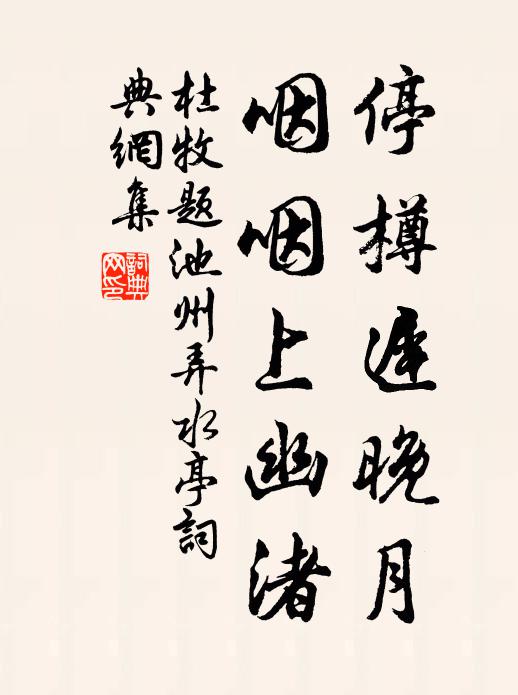 停樽遲晚月
咽咽上幽渚
杜牧題池州弄水亭詞
典網集
詞典
网印